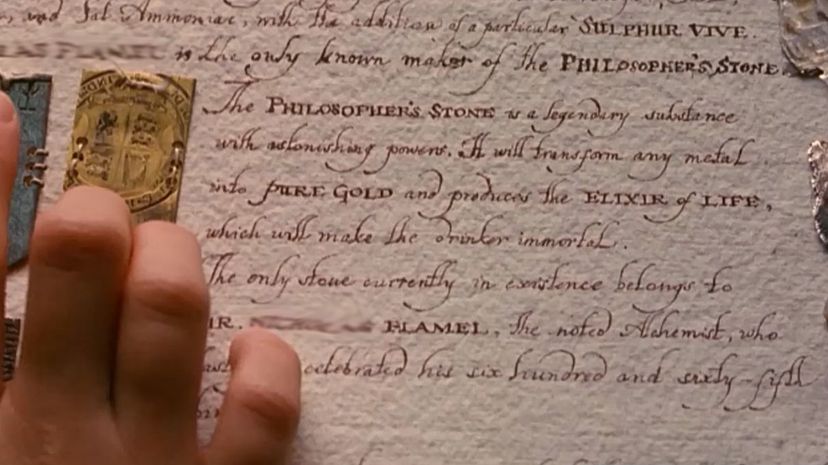 and Sal Ammoniac, with the addition of a particular SULPHUR VIVE.
is the only known maker of the PHILOSOPHER'S STONE.
The PHILOSOPHER'S STONE is a legendary substance
with astonishing powers. It will transform any metal
into PURE GOLD and produces the ELIXIR of LIFE,
which will make the drinker immortal.
The only stone currently in existence belongs to
FLAMEL, the noted Alchemist, who
celebrated his six hundred and sixty-fifth